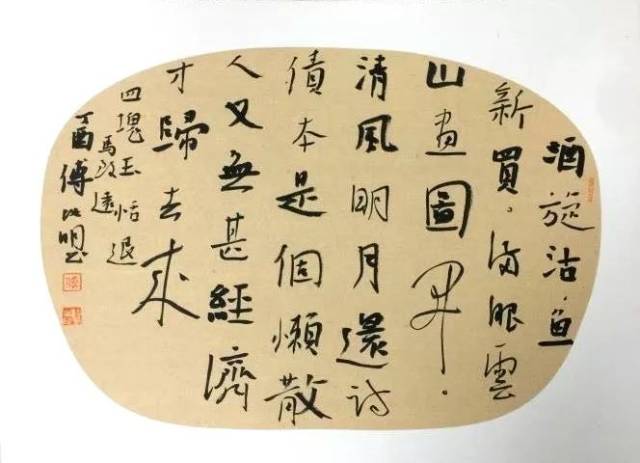 酒旋沽.魚
新買.滿眼雲
山畫圖開.
清風明月還詩
債本是個懶散
人又無甚經濟
才歸去來
四塊玉恬退
馬致遠
丁酉傅